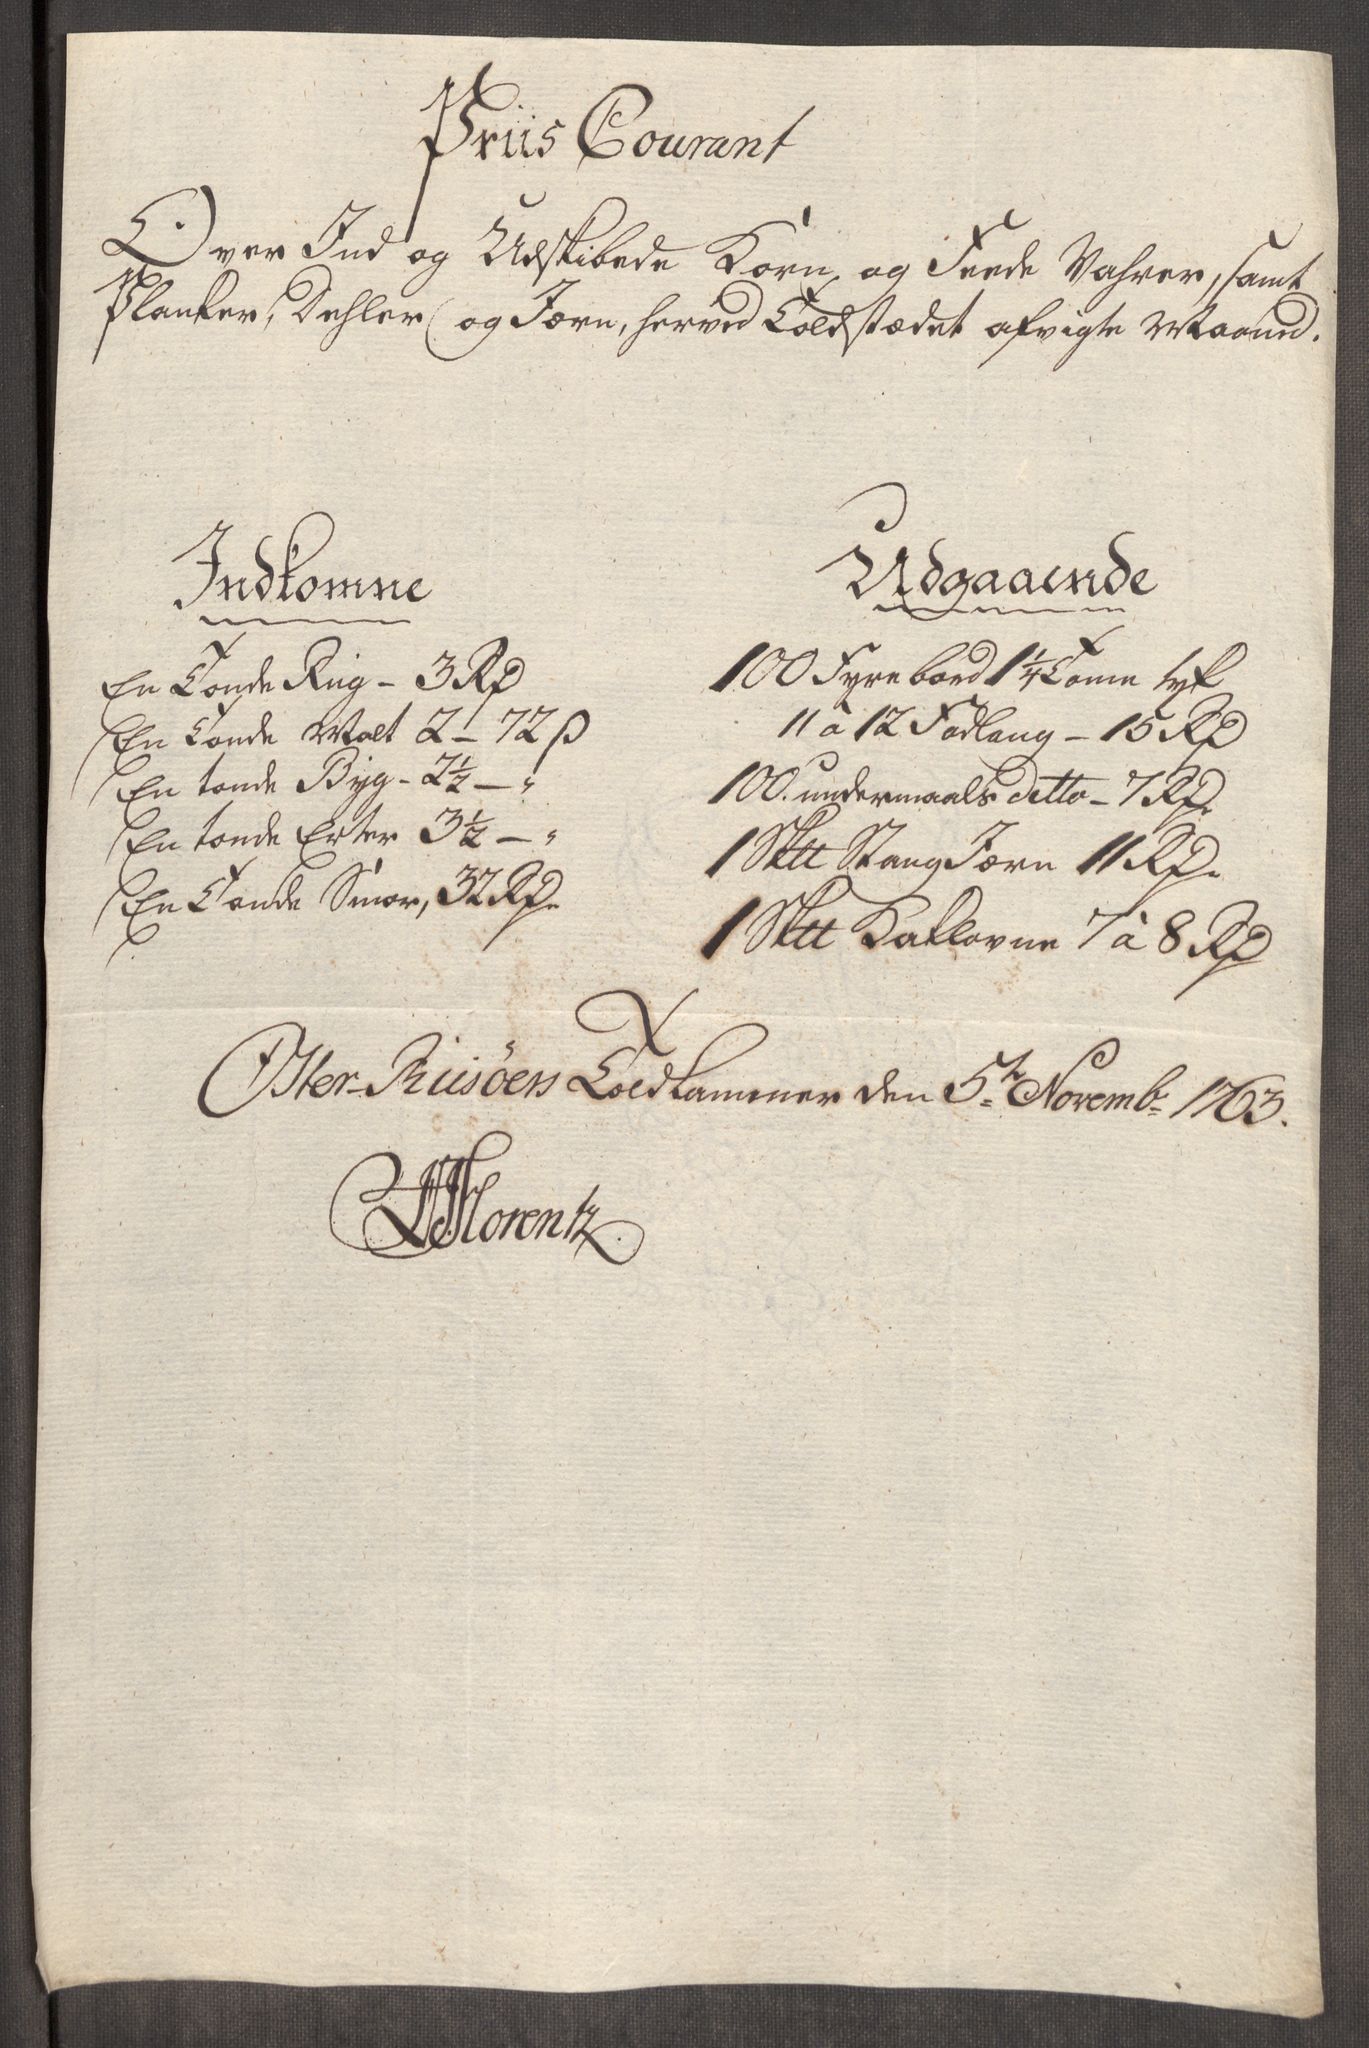 Priis Courant
Over Ind og Udskibede Korn og Feede Vahrer, samt
Planker, Dehler og Jærn, herved Toldstædet afvigte Maaned.
Indkomne
En Tønde Rug - 3 Rd
En Tønde Malt 2 - 72 ß
En tønde Byg - 2½ - "
En tønde Erter 3½ - "
En Tønde Smør, 32 Rd.
Udgaaende
100 Fyrre bord 1¼ Tomme tyk
11 à 12 Fod lang - 15 Rd
100. undermaals ditto - 7 Rd.
1 Sktt Stang Jærn 11 Rd.
1 Sktt Kaklovne 7 à 8 Rd
Øster-Riisöers Toldkammer den 5te Novemb: 1763.
Lorentz